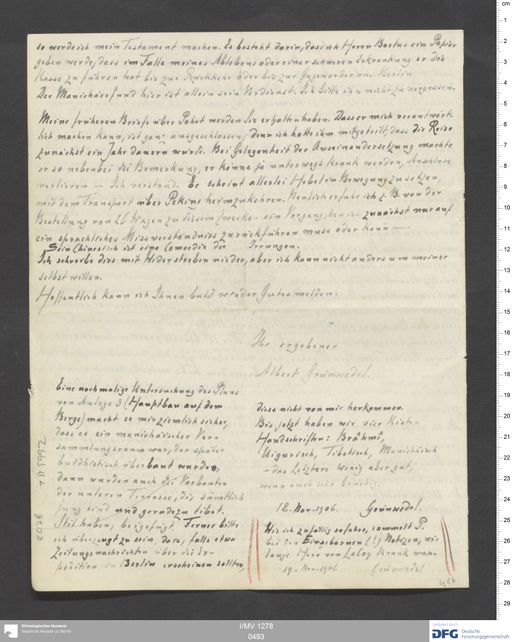 so werde ich mein Testament machen. Es besteht darin, dass ich Herrn Bartus ein Papier
geben werde, dass im Falle meines Ablebens oder einer schweren Erkrankung er die
Kasse zu führen hat bis zur Rückkehr oder bis zur Gegenorder von Berlin
Der Manichäerfund hier ist allein sein Verdienst. Ich bitte ihm nicht zu vergessen.
Meine früheren Briefe über Pohrt werden Sie erhalten haben. Dass er mich verantwort-
lich machen kann, ist ganz ausgeschlossen; denn ich hatte ihm mitgeteilt, dass die Reise
zunächst ein Jahr dauern würde. Bei Gelegenheit der Auseinandersetzung machte
er so nebenbei die Bemerkung, er könne ja unterwegs krank werden,
verlieren — Ich verstand. Er scheint allerlei Hebel in Bewegung zu setzen,
mit dem Transport über Peking heimzukehren. Neulich erfuhr ich z.B. von der
Bestellung von 26 Wagen zu diesem Zwecke - ein Vorgang, den ich zunächst nur auf
ein sprachliches Missverständniss zurückführen muss oder kann —
Sein Chinesisch ist eine Comoedie der Irrungen.
Ich schreibe dies mit Widerstreben nieder, aber ich kann nicht anders um meiner
selbst willen.
Hoffentlich kann ich Ihnen bald wieder Gutes melden.
Ihr ergebener
Albert Grünwedel.
Eine nochmalige Untersuchung des Plans
von Anlage 3 (Hauptbau auf dem
Berge) macht es mir ziemlich sicher,
dass es ein manichäischer Ver-
sammlungsraum war, der später
buddhistisch überbaut wurde,
dann wurden auch die Vorbauten
der unteren Terrasse, die sämtlich
jung sind und geradezu tibet.
Stil haben, beigefügt. Ferner bitte
ich überzeugt zu sein, dass, falls etwa
Zeitungsnachrichten über die Ex-
pedition in Berlin erscheinen sollten,
diese nicht von mir herkommen.
Bis jetzt haben wir vier Kisten
Handschriften: Brāhmī,
Uigurisch, Tibetisch, Manichäisch
- das Letztere wenig aber gut,
18. Nov. 1906. Grünwedel.
Wie ich zufällig erfahre, sammelt P.
bei den Eingebornen (!) Notizen, wie
lange Herr von Lecoq krank war.
19. Nov. 1906 Grünwedel
Ethnologisches Museum
Staatliche Museen zu Berlin
I/MV 1278
0493
gefördert durch
DFG Deutsche
Forschungsgemeinschaft
cm
1
2
3
4
5
6
7
8
9
10
11
12
13
14
15
16
17
18
19
20
21
22
23
24
25
26
27
28
29